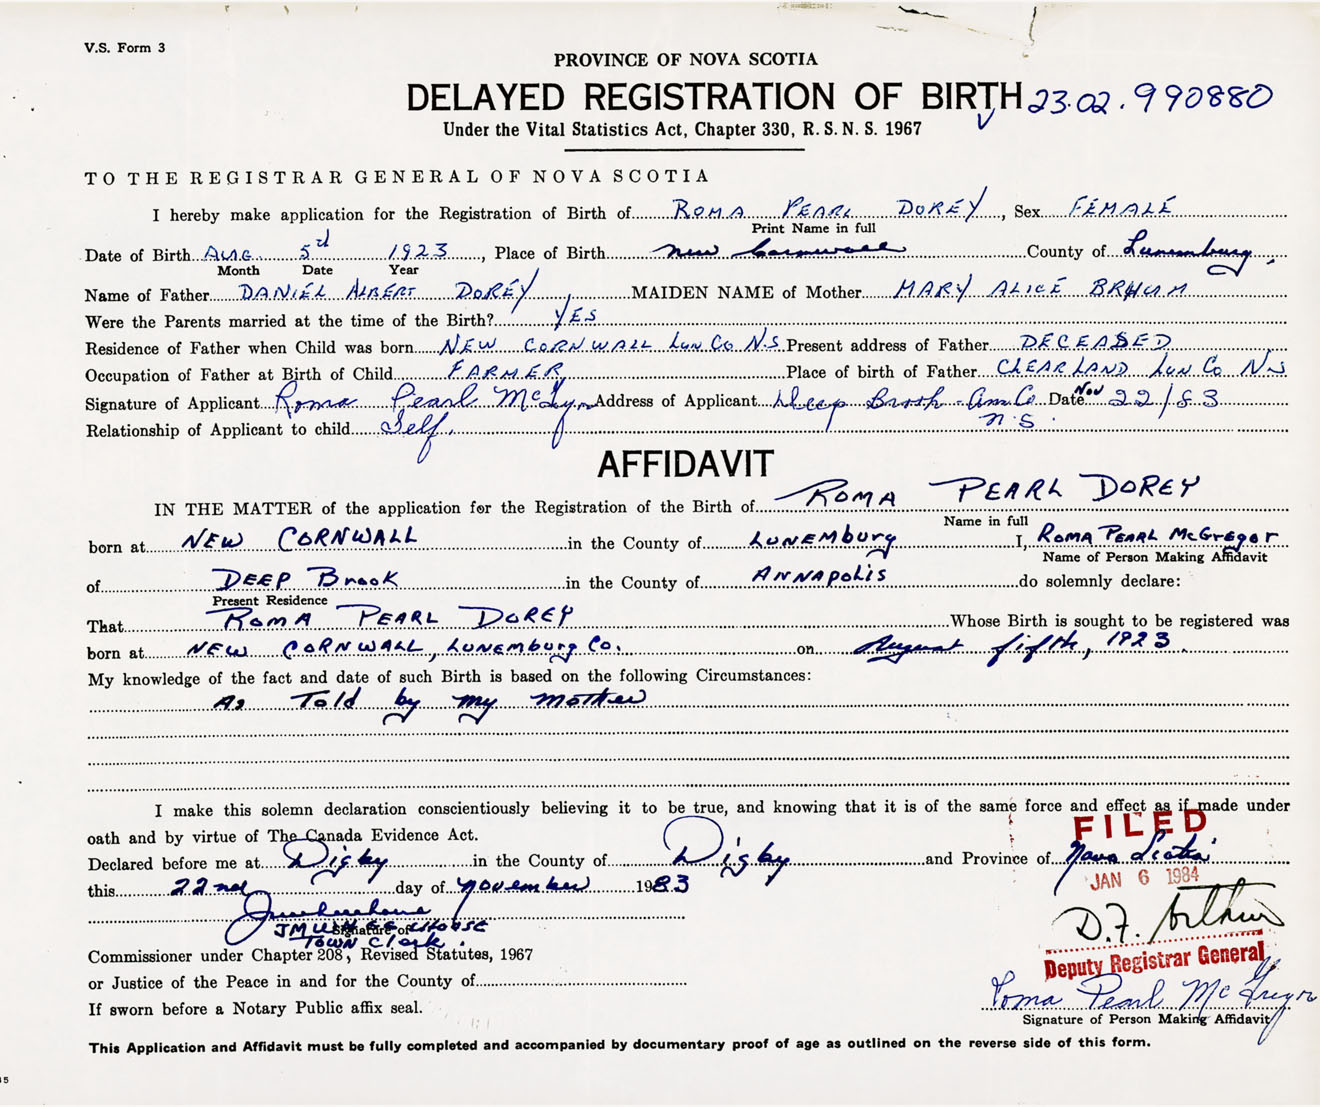 V.S. Form 3
PROVINCE OF NOVA SCOTIA
DELAYED REGISTRATION OF BIRTH 23.02.990880
Under the Vital Statistics Act, Chapter 330, R.S.N.S. 1967
TO THE REGISTRAR GENERAL OF NOVA SCOTIA
I hereby make application for the Registration of Birth of ROMA PEARL DOREY, Sex FEMALE
Print Name in full
Date of Birth AUG. 5rd 1923, Place of Birth New Cornwall County of Lunenburg.
Month Date Year
Name of Father DANIEL ALBERT DOREY, MAIDEN NAME of Mother MARY ALICE BRHUM
Were the Parents married at the time of the Birth? YES
Residence of Father when Child was born NEW CORNWALL LUN CO N.S Present address of Father DECEASED
Occupation of Father at Birth of Child FARMER Place of birth of Father CLEARLAND LUN CO NS
Signature of Applicant Roma Pearl Address of Applicant Deep Brook - Ann Co Date Nov 22/83
N.S.
Relationship of Applicant to child Self.
AFFIDAVIT
IN THE MATTER of the application for the Registration of the Birth of ROMA PEARL DOREY
Name in full
born at NEW CORNWALL in the County of LUNEMBURG I, ROMA PEARL McGregor
Name of Person Making Affidavit
of DEEP Brook in the County of ANNAPOLIS do solemnly declare:
Present Residence
That ROMA PEARL DOREY Whose Birth is sought to be registered was
born at NEW CORNWALL, LUNEMBURG Co. on August fifth, 1923.
My knowledge of the fact and date of such Birth is based on the following Circumstances:
As Told by my mother
I make this solemn declaration conscientiously believing it to be true, and knowing that it is of the same force and effect as if made under
oath and by virtue of The Canada Evidence Act.
FILED
Declared before me at Digby in the County of Digby and Province of Nova Scotia
this 22nd day of November 1983
JAN 6 1984
Signature of
TOWN Clerk.
D.F. Arthur
Commissioner under Chapter 208, Revised Statutes, 1967
Deputy Registrar General
or Justice of the Peace in and for the County of
If sworn before a Notary Public affix seal.
Roma Pearl McGregor
Signature of Person Making Affidavit
This Application and Affidavit must be fully completed and accompanied by documentary proof of age as outlined on the reverse side of this form.